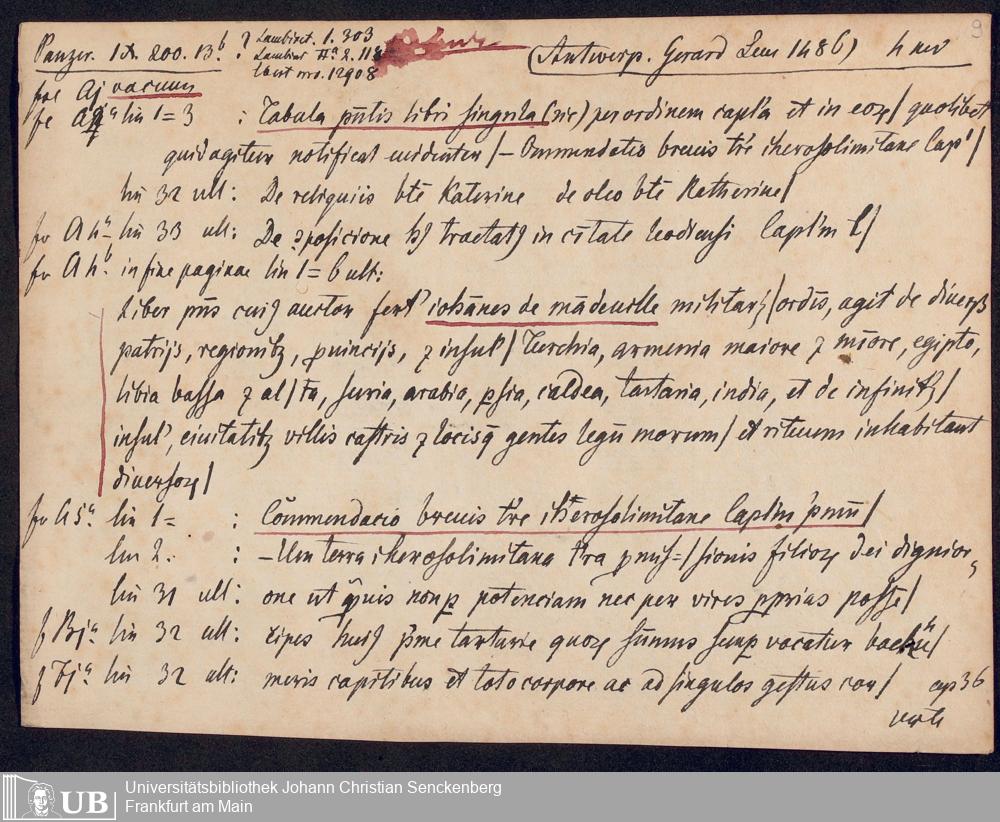 9
Panzer. IX. 200. 13.b ? Lambinet. 1. 303
Lambinet IIa 2. 118
Ebert nro. 12908
(Antwerp. Gerard Leu 1486) h nev
fol aj vacuus
fo aija lin 1=3 : Tabula pñtis libri singula (sic) per ordinem capl'a et in eoꝝ/ quolibet
quid agitur notificat euidenter/ – Commendatio breuis tr̃e iherosolimitane Cap'/
lin 32 ult: De reliquiis btẽ Katerine de oleo btẽ Katherine/
fo A iia lin 33 ult: De ꝯposicione hꝰ tractatꝰ in cĩtate leodiensi Capl'm l/
fo A ii.b in fine paginae lin 1=6 ult:
Liber pñs cuiꝰ auctor fert' iohãnes de mãdeuille militarꝭ/ ordĩs, agit de diuersꝭ
patrijs, regionibꝫ, ꝓuincijs, ⁊ insul'/ Turchia, armenia maiore ⁊ mĩore, egipto,
libia bassa ⁊ al/ta, suria, arabia, ꝑsia, caldea, tartaria, india, et de infinitꝭ/
insul', ciuitatibꝫ villis castris ⁊ locis qͥ gentes legũ morum/ et rituum inhabitant
diuersoꝝ/
fo A 5a. lin 1= : Cõmendacio breuis tr̃e ih'erosolimitane Capl'm p'mũ/
lin 2. : – Um terra iherosolimitana t'ra ꝓmis=/sionis filioꝝ dei dignior,
lin 31 ult: one ut qͣuis non ꝑ potenciam nec per vires ꝓprias posse/
f Bja. lin 32 ult: ripes huiꝰ p'me tartarie quoꝝ sũmus semꝑ vocatur bachu/
f Fja. lin 32 ult: meris capitibus et toto corpore ac ad singulos gestus cor/ cap 36
verte
Universitätsbibliothek Johann Christian Senckenberg
Frankfurt am Main
UB